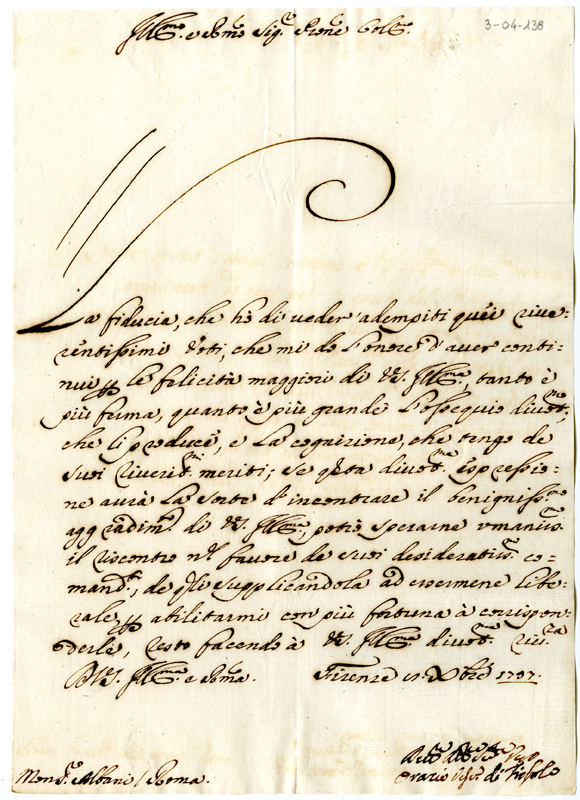 3-04-138
Ill.mo e Rmo Sig.re Prone Col.mo
La fiducia, che hò di veder' adempiti quei rive-
rentissimi Voti, che mi do l'onore d'aver conti-
nui le felicità maggiori di V.S. Ill.ma, tanto è
più ferma, quanto è più grande l'ossequio divot.mo,
che li produce, e la cognizione, che tengo de
suoi riverit.mi meriti; se q.sta divot.ma espressio-
ne avrà la sorte d'incontrare il benigniss.mo
aggradim.to di V.S. Ill.ma, potrò sperarne
il riscontro nel favore de suoi desideratiss. co-
mand.ti, de q.li supplicandola ad essermene libe-
rale abilitarmi con più fortuna à corrispon-
derle, resto facendo à V.S. Ill.ma divot.ma riv.za
D. V.S. Ill.ma e Rma. Firenze Xbre 1707.
Mons.r Albani / Roma.
Orazio Vesc. di Fiesole